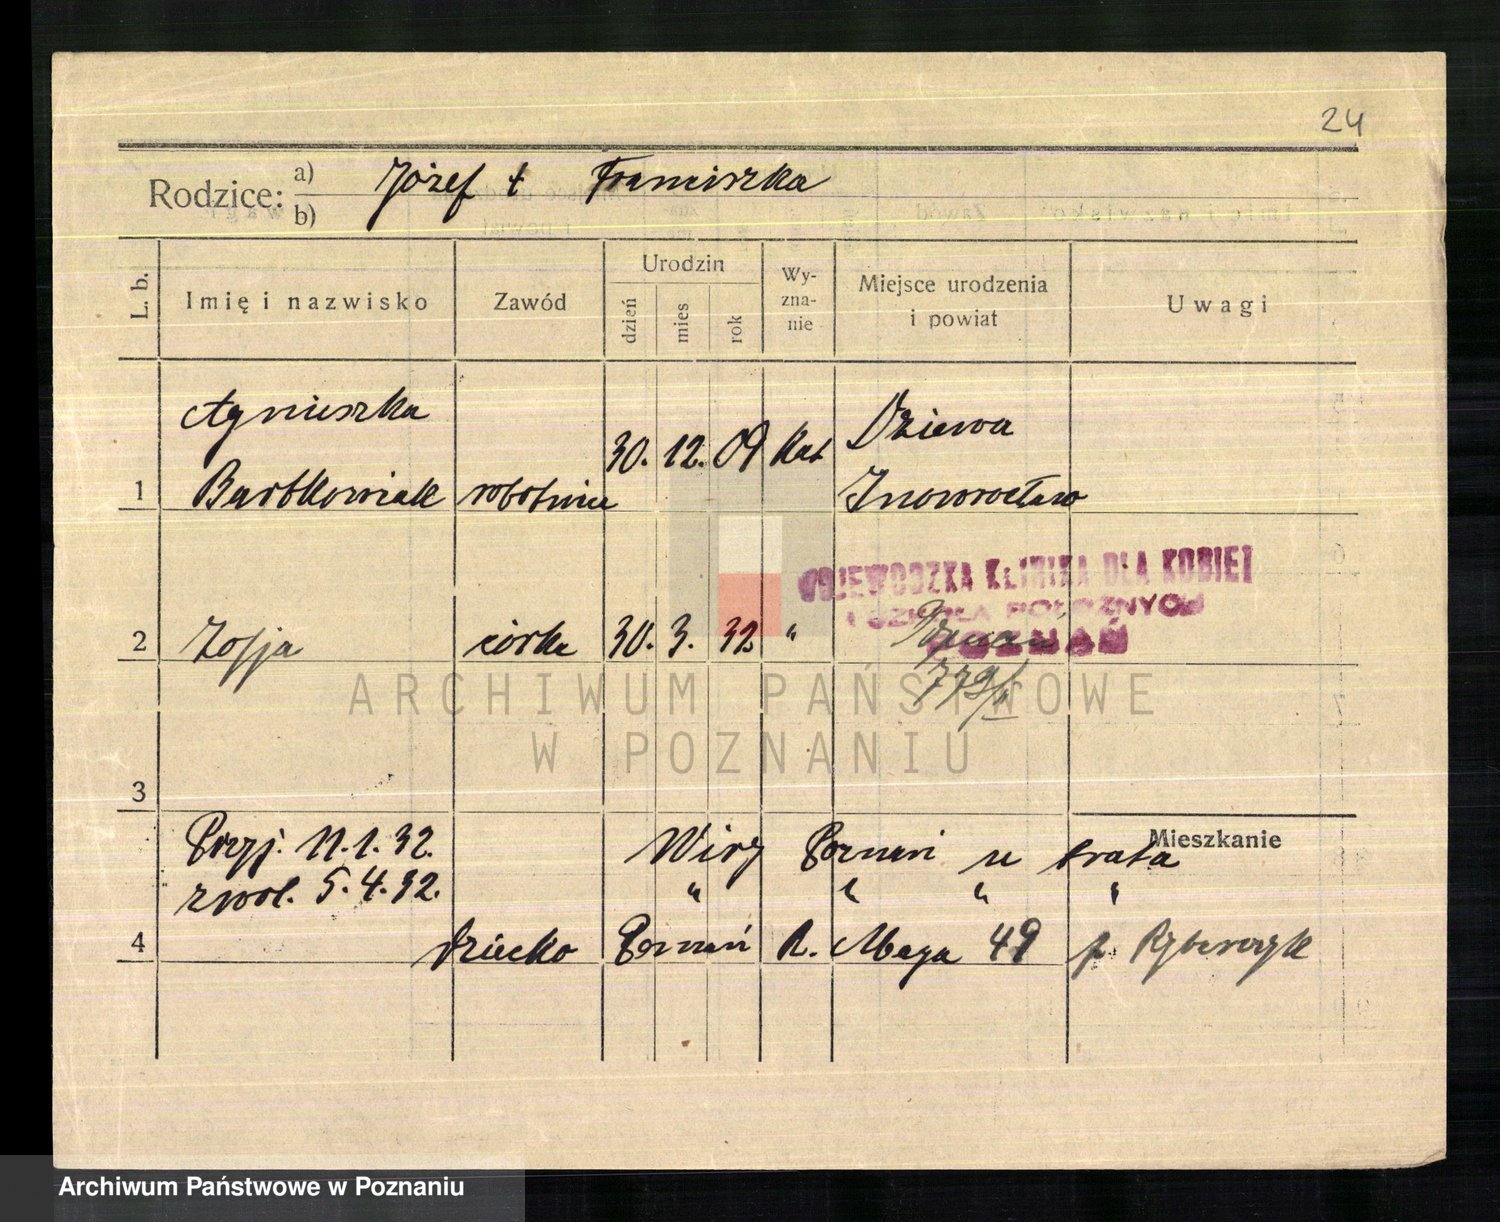 24
Rodzice: a) Józef + Franciszka
b)
L. b. Imię i nazwisko Zawód Urodzin dzień mies rok Wy-zna-nie Miejsce urodzenia i powiat Uwagi
Agnieszka Dziewa
30. 12. 09 kat
1 Bartkowiak robotnica Inowrocław
WOJEWÓDZKA KLINIKA DLA KOBIET
I SZKOŁA POŁOŻNYCH
POZNAŃ
2 Zofja córka 30. 3. 32 " Poznań
779/II
ARCHIWUM PAŃSTWOWE
W POZNANIU
3
Mieszkanie
Przyj. 11.1.32. Wiry Poznań u brata
zwol. 5.4.32. " " " "
4 dziecko Poznań R. Maya 49 p. Rybarczyk
Archiwum Państwowe w Poznaniu